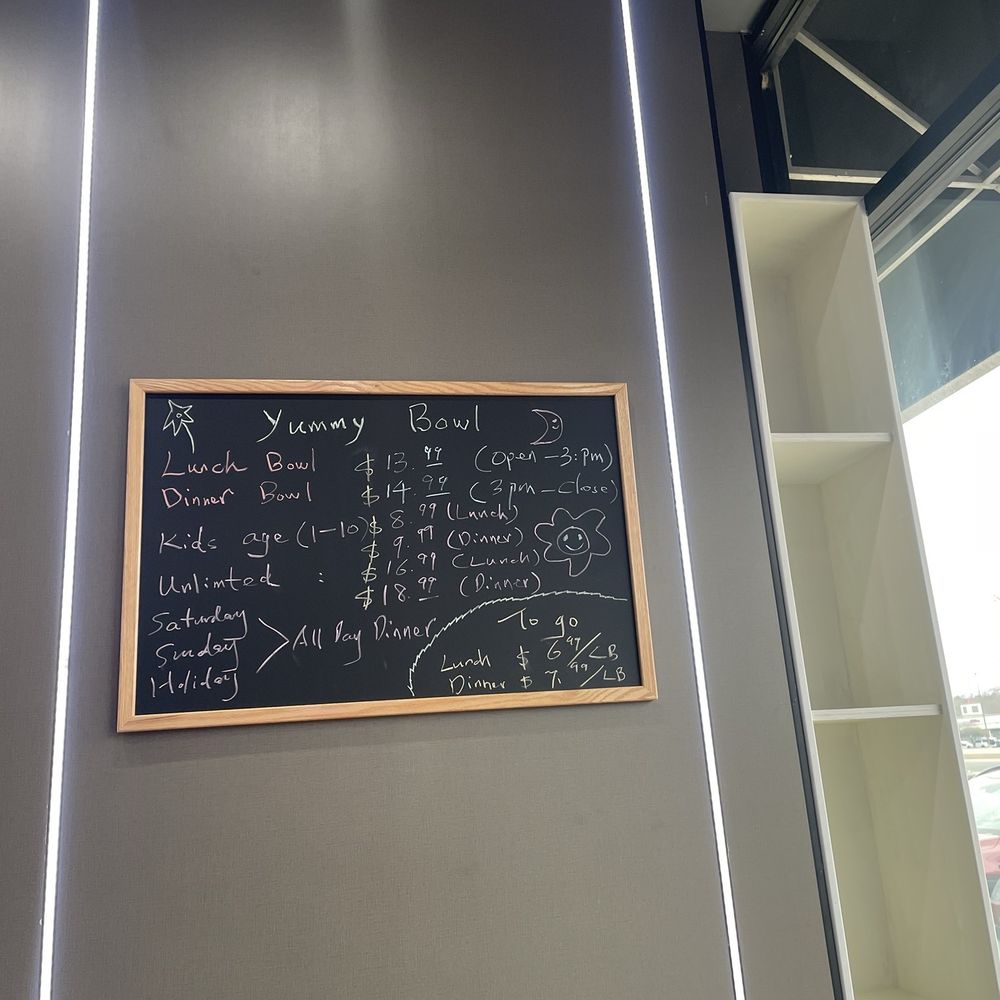 Yummy Bowl
Lunch Bowl $ 13.99 (Open - 3:pm)
Dinner Bowl $ 14.99 (3pm - Close)
Kids age (1-10) $ 8.99 (Lunch)
$ 9.99 (Dinner)
Unlimted : $ 16.99 (Lunch)
$ 18.99 (Dinner)
Saturday
Sunday > All Day Dinner
Holiday
To go
Lunch $ 6.99/LB
Dinner $ 7.99/LB